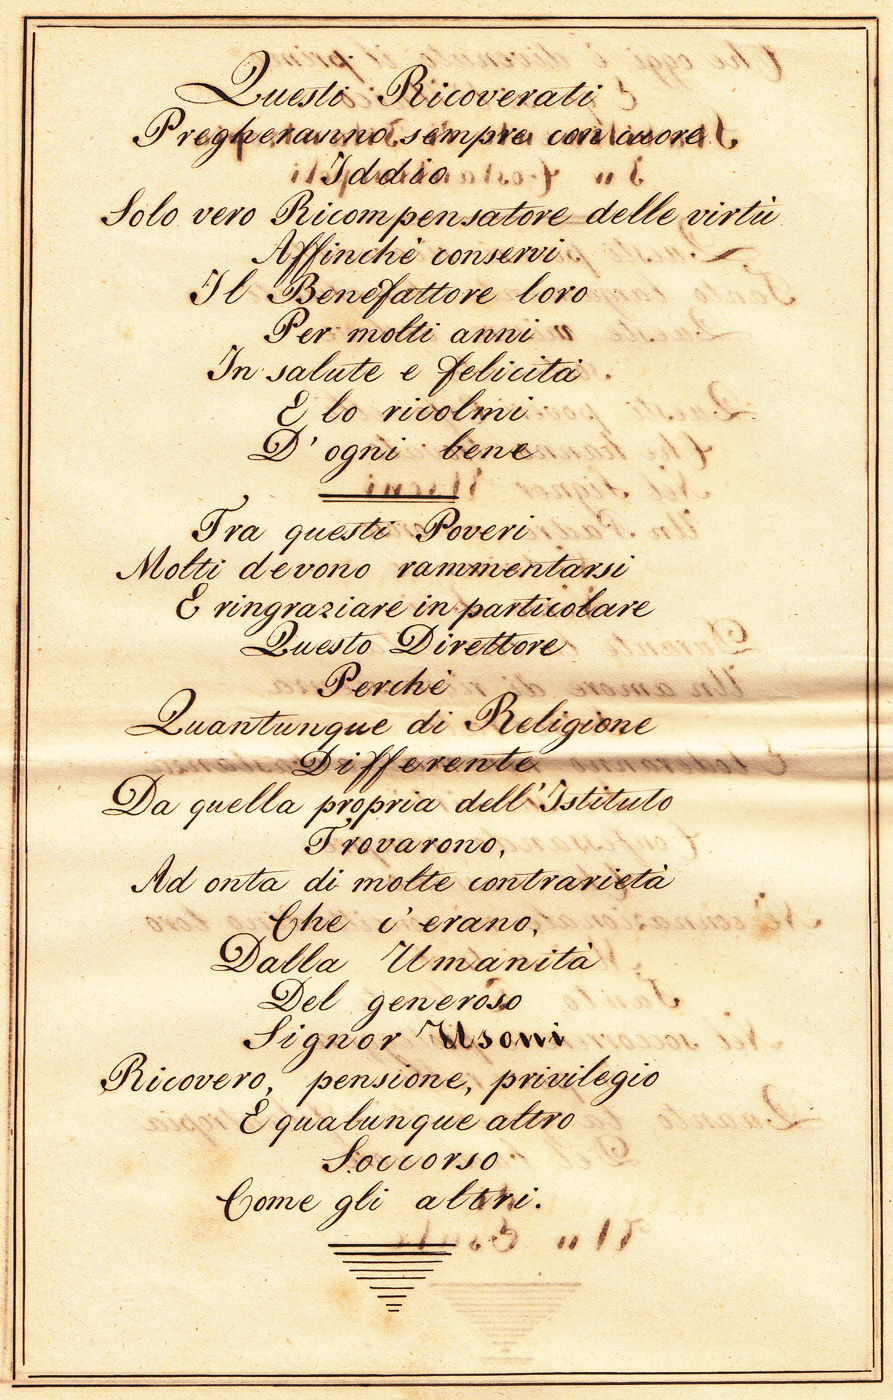 Questi Ricoverati
Pregheranno sempre con cuore
Iddio
Solo vero Ricompensatore delle virtù
Affinchè conservi
Il Benefattore loro
Per molti anni
In salute e felicità
E lo ricolmi
D' ogni bene
Tra questi Poveri
Molti devono rammentarsi
E ringraziare in particolare
Questo Direttore
Perchè
Quantunque di Religione
Differente
Da quella propria dell' Istituto
Trovarono,
Ad onta di molte contrarietà
Che c' erano,
Dalla Umanità
Del generoso
Signor Usoni
Ricovero, pensione, privilegio
E qualunque altro
Soccorso
Come gli altri.